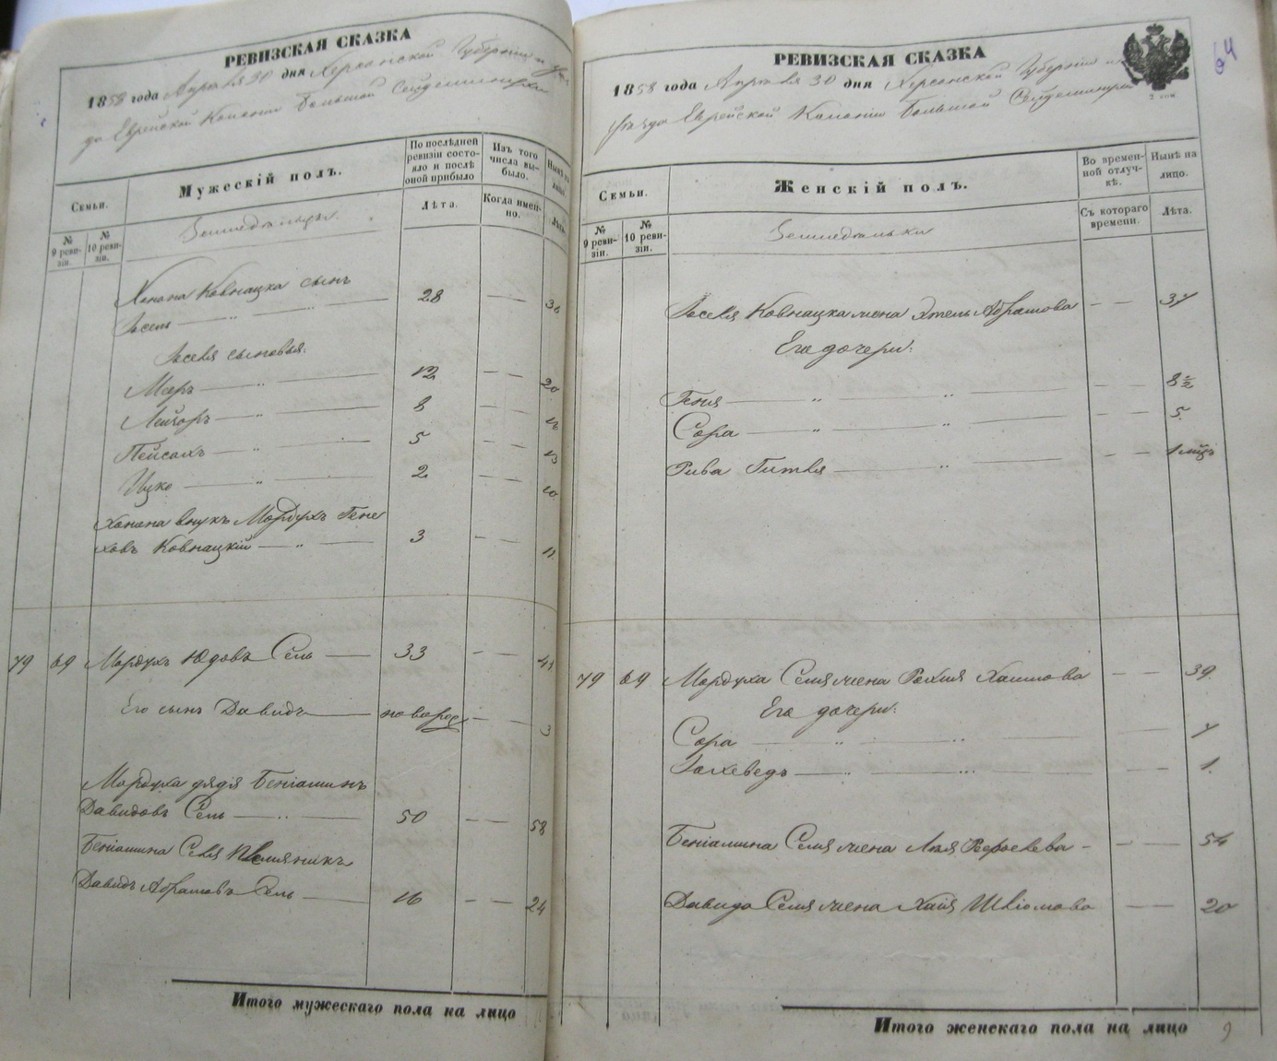 РЕВИЗСКАЯ СКАЗКА
1858 года Апреля 30 дня Херсонской Губерніи и уѣз
да Еврейской Колоніи Большой Сейдеминухи
Семьи.
Мужескій полъ.
По послѣдней ревизіи состояло и послѣ оной прибыло
Изъ того числа выбыло.
Нынѣ на
№ 9 ревизіи.
№ 10 ревизіи.
Лѣта.
Когда именно.
Земледѣльцы
Хонона Ковнацка сынъ
Іосель — " — 28 — —
Іоселя сыновья.
Мееръ — " — 12 — — 20
Лейзоръ — " — 8 — —
Пейсахъ — " 5 — — 13
Ицко — " — 2 — — 10
Хонона внукъ Мордухъ Гене
ховъ Ковнацкій — " — 3 — — 11.
79 69 Мордухъ Юдовъ Сель — 33 — — 41
Его сынъ Давидъ — новорож — —
Мордуха дядя Беніаминъ
Давидовъ Сель — " — 50 — — 58
Беніамина Селя племянникъ
Давидъ Абрамовъ Сель — 16 — — 24
Итого мужескаго пола на лицо
РЕВИЗСКАЯ СКАЗКА
64
1858 года Апреля 30 дня Херсонской Губерніи и
уѣзда Еврейской Колоніи Большой Сейдеминухи
Семьи.
Женскій полъ.
Во временной отлучкѣ.
Нынѣ на лицо.
№ 9 ревизіи.
№ 10 ревизіи.
Съ котораго времени.
Лѣта.
Земледѣльки
Іоселя Ковнацка жена Этель Абрамова — — 37
Его дочери:
Геня — " " — — — 8½
Сора — " " — — — 5.
Рива Гитля — " — — — 1 мѣц
79 69 Мордуха Селя жена Рохля Хаимова — — 39
Его дочери:
Сора — " " — — — 7
Іохеведъ — " " — — — 1.
Беніамина Селя жена Лея — — 54
Давида Селя жена Хая — — 20
Итого женскаго пола на лицо 9